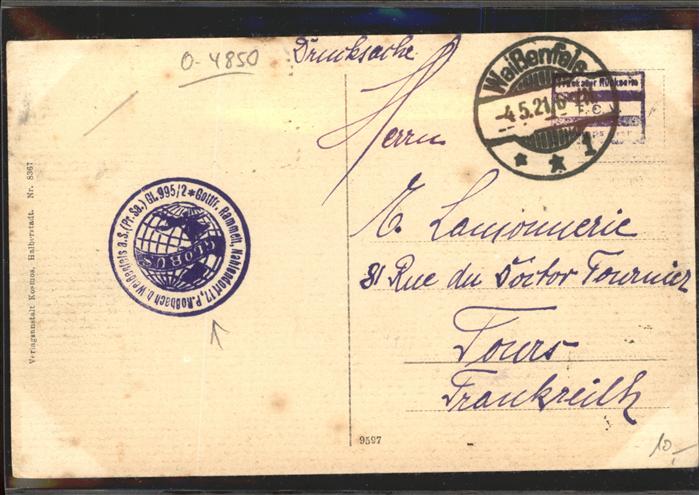 O-4850
Drucksache
Weißenfels
-4.5.21.6
* * 1
Herrn
E. Lamonnerie
81 Rue du Doctor Fournier
Tours
Frankreich
GL.995/2 * Gottfr. Rammelt, Kahlendorf 17, P. Roßbach b. Weißenfels a.S. (Pr. Sa.)
GLOBUS
Verlagsanstalt Kosmos, Halberstadt. Nr. 8367
9597
10,-